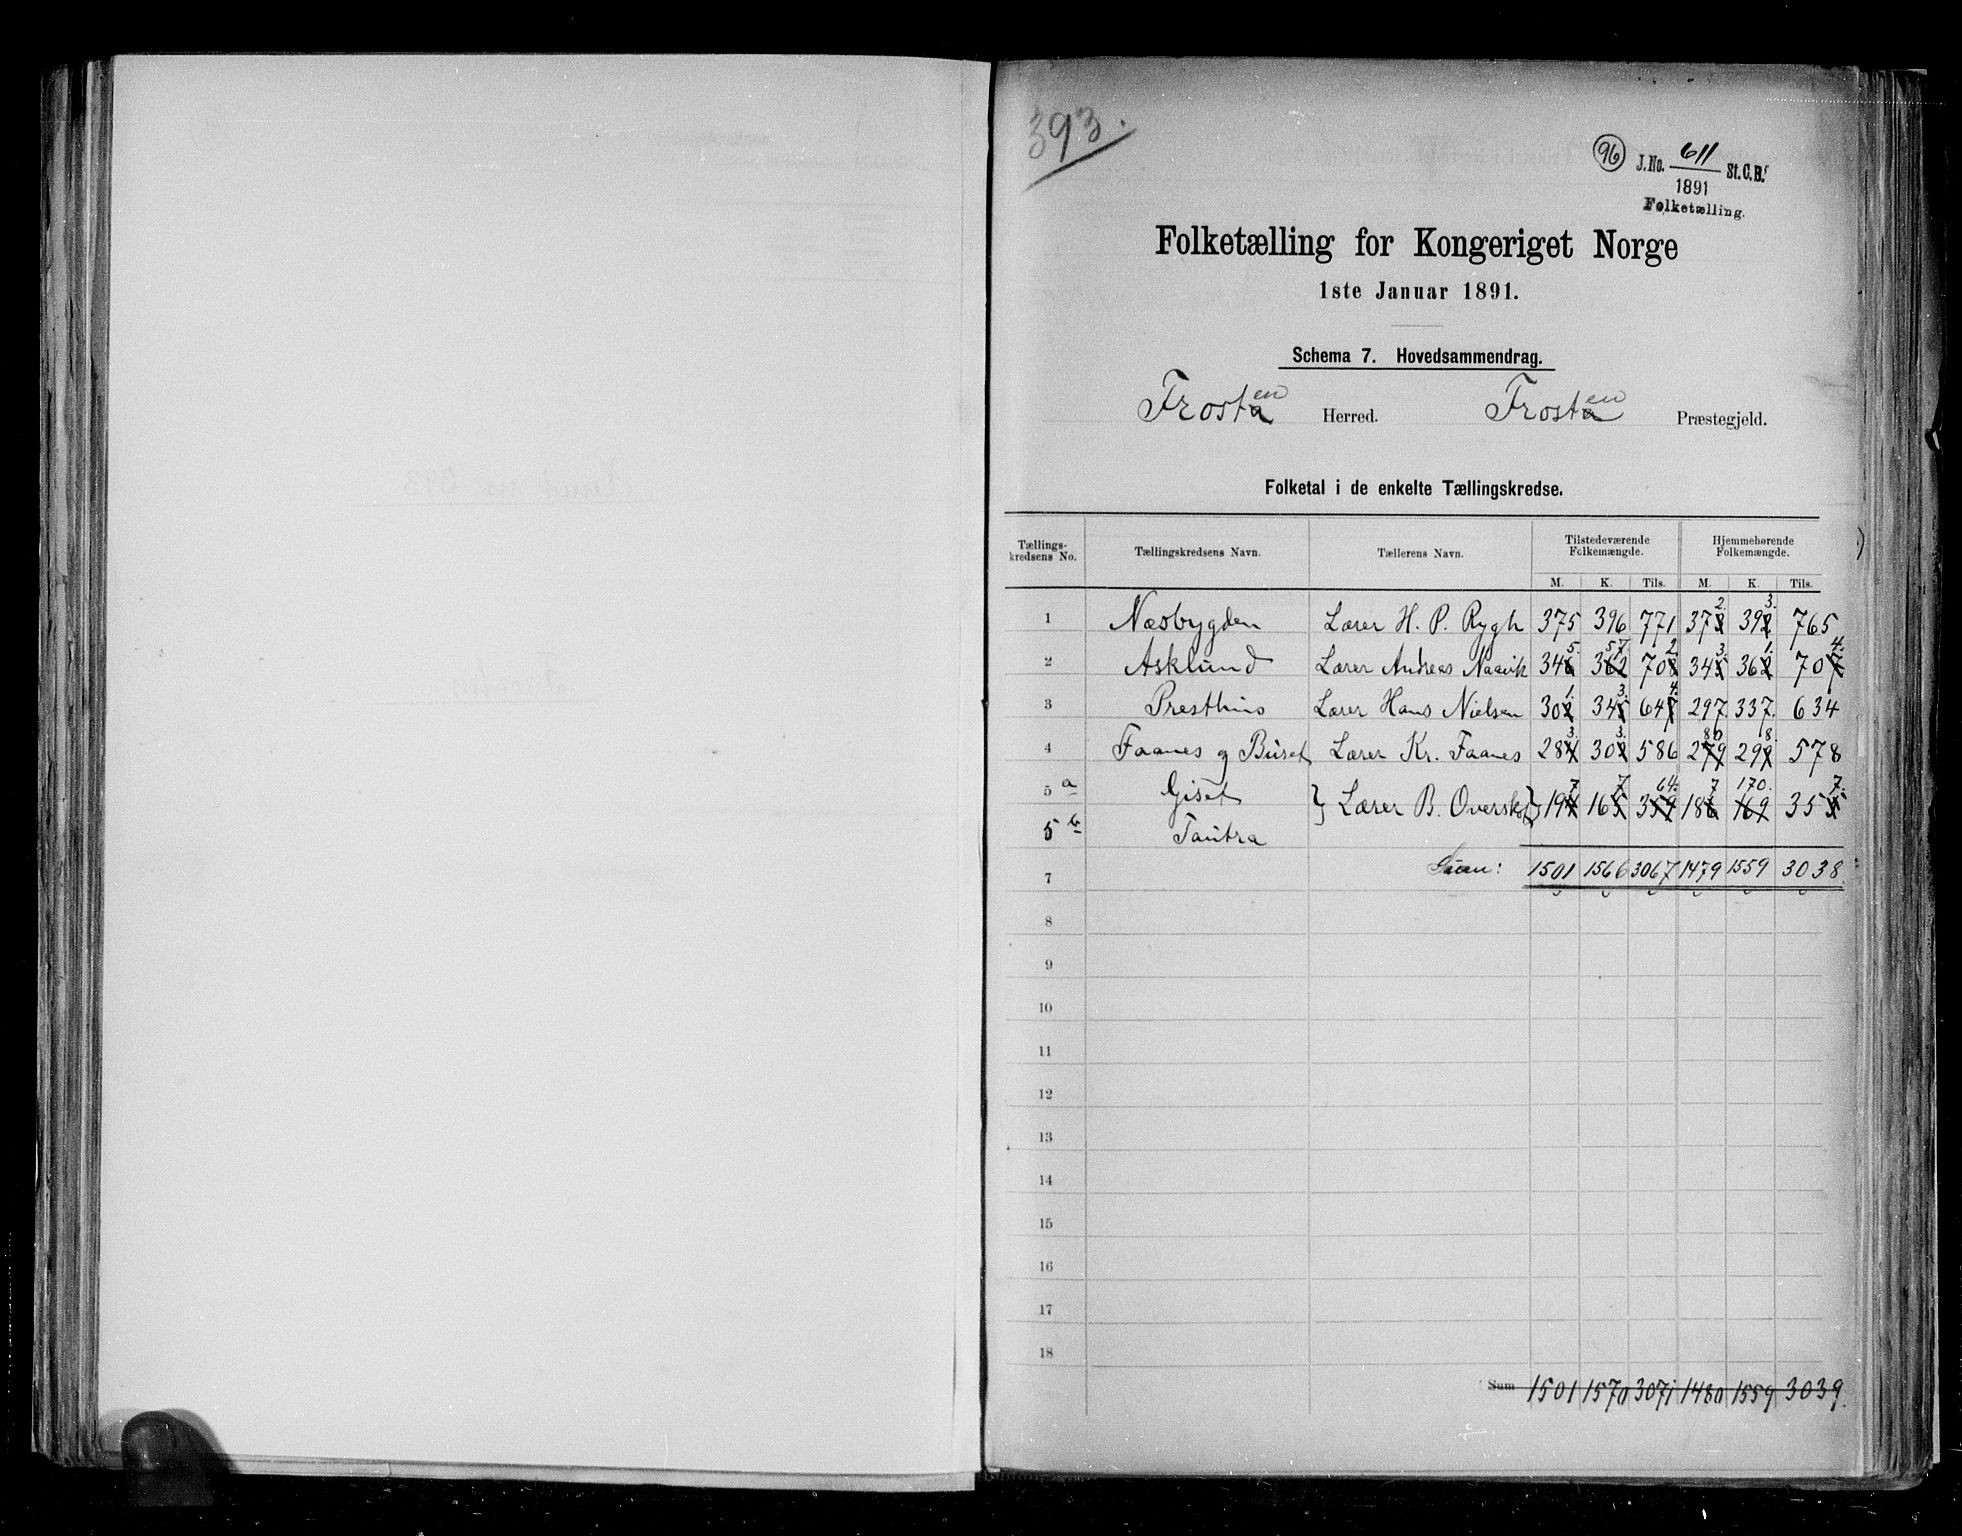 393.
96
J. No. 611 St. C. B.
1891
Folketælling.
Folketælling for Kongeriget Norge
1ste Januar 1891.
Schema 7. Hovedsammendrag.
Frosta en Herred. Frosta en Præstegjeld.
Folketal i de enkelte Tællingskredse.
Tællings-kredsens No. Tællingskredsens Navn. Tællerens Navn. Tilstedeværende Folkemængde. Hjemmehørende Folkemængde.
M. K. Tils. M. K. Tils.
2. 3.
1 Næsbygden Lærer H. P. Rygh 375 396 771 373 392 765
5. 57. 2. 3. 1. 4.
2 Asklund Lærer Andreas Naavik 346 362 708 345 362 707
1. 3. 4.
3 Presthus Lærer Hans Nielsen 302 345 647 297 337 634
3. 3. 80 8.
4 Faanes og Buset Lærer Kr. Faanes 284 302 586 279 299 578
7 7 64. 7 170. 7.
5 a Giset } Lærer B. Overskot } 194 165 359 186 169 355
5 b Tautra
7 Sum: 1501 1566 3067 1479 1559 3038
8
9
10
11
12
13
14
15
16
17
18
Sum 1501 1570 3071 1480 1559 3039